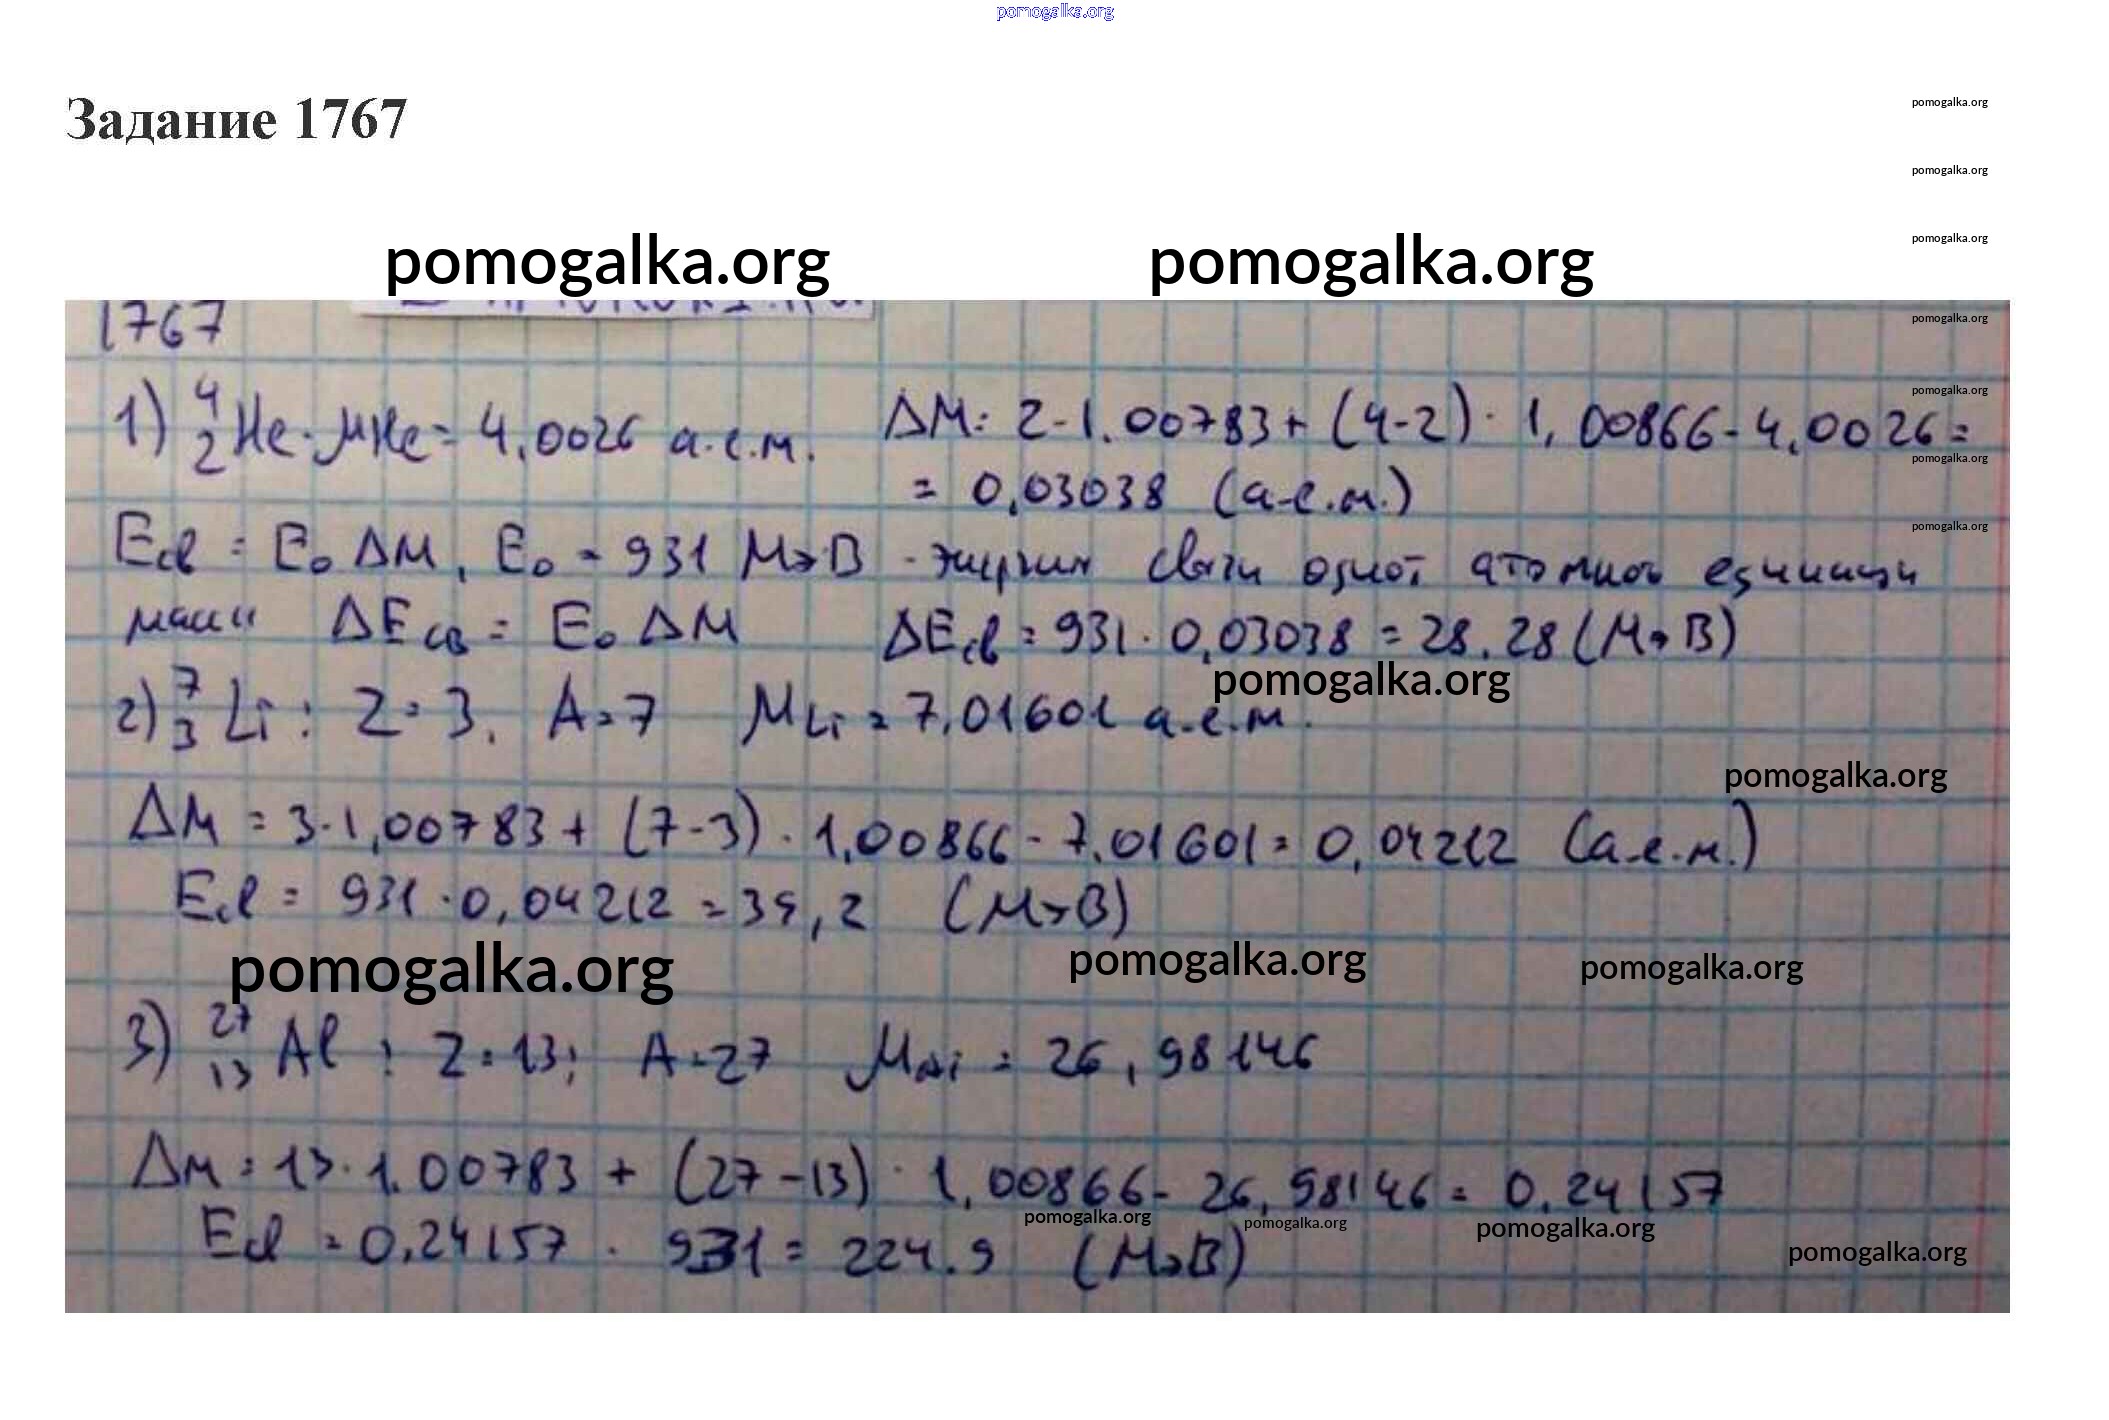 pomogalka.org
Задание 1767
pomogalka.org
pomogalka.org
pomogalka.org
pomogalka.org pomogalka.org
1767
pomogalka.org
1) ⁴₂He. MHe = 4,0026 а.е.м. ΔM = 2·1,00783 + (4-2) · 1,00866 - 4,0026 =
pomogalka.org
pomogalka.org
= 0,03038 (а.е.м.)
pomogalka.org
Eсв = E₀ ΔM, E₀ = 931 МэВ - энергия связи одной атомной единицы
массы ΔEсв = E₀ ΔM ΔEсв = 931 · 0,03038 = 28.28 (МэВ)
pomogalka.org
2) ⁷₃Li : Z = 3, A = 7 MLi = 7,01601 а.е.м.
pomogalka.org
ΔM = 3·1,00783 + (7-3) · 1,00866 - 7,01601 = 0,04212 (а.е.м.)
Eсв = 931 · 0,04212 = 39,2 (МэВ)
pomogalka.org pomogalka.org pomogalka.org
3) ²⁷₁₃Al : Z = 13; A = 27 MAl = 26,98146
ΔM = 13·1,00783 + (27-13) · 1,00866 - 26,98146 = 0,24157
pomogalka.org pomogalka.org pomogalka.org
Eсв = 0,24157 · 931 = 224.9 (МэВ)
pomogalka.org